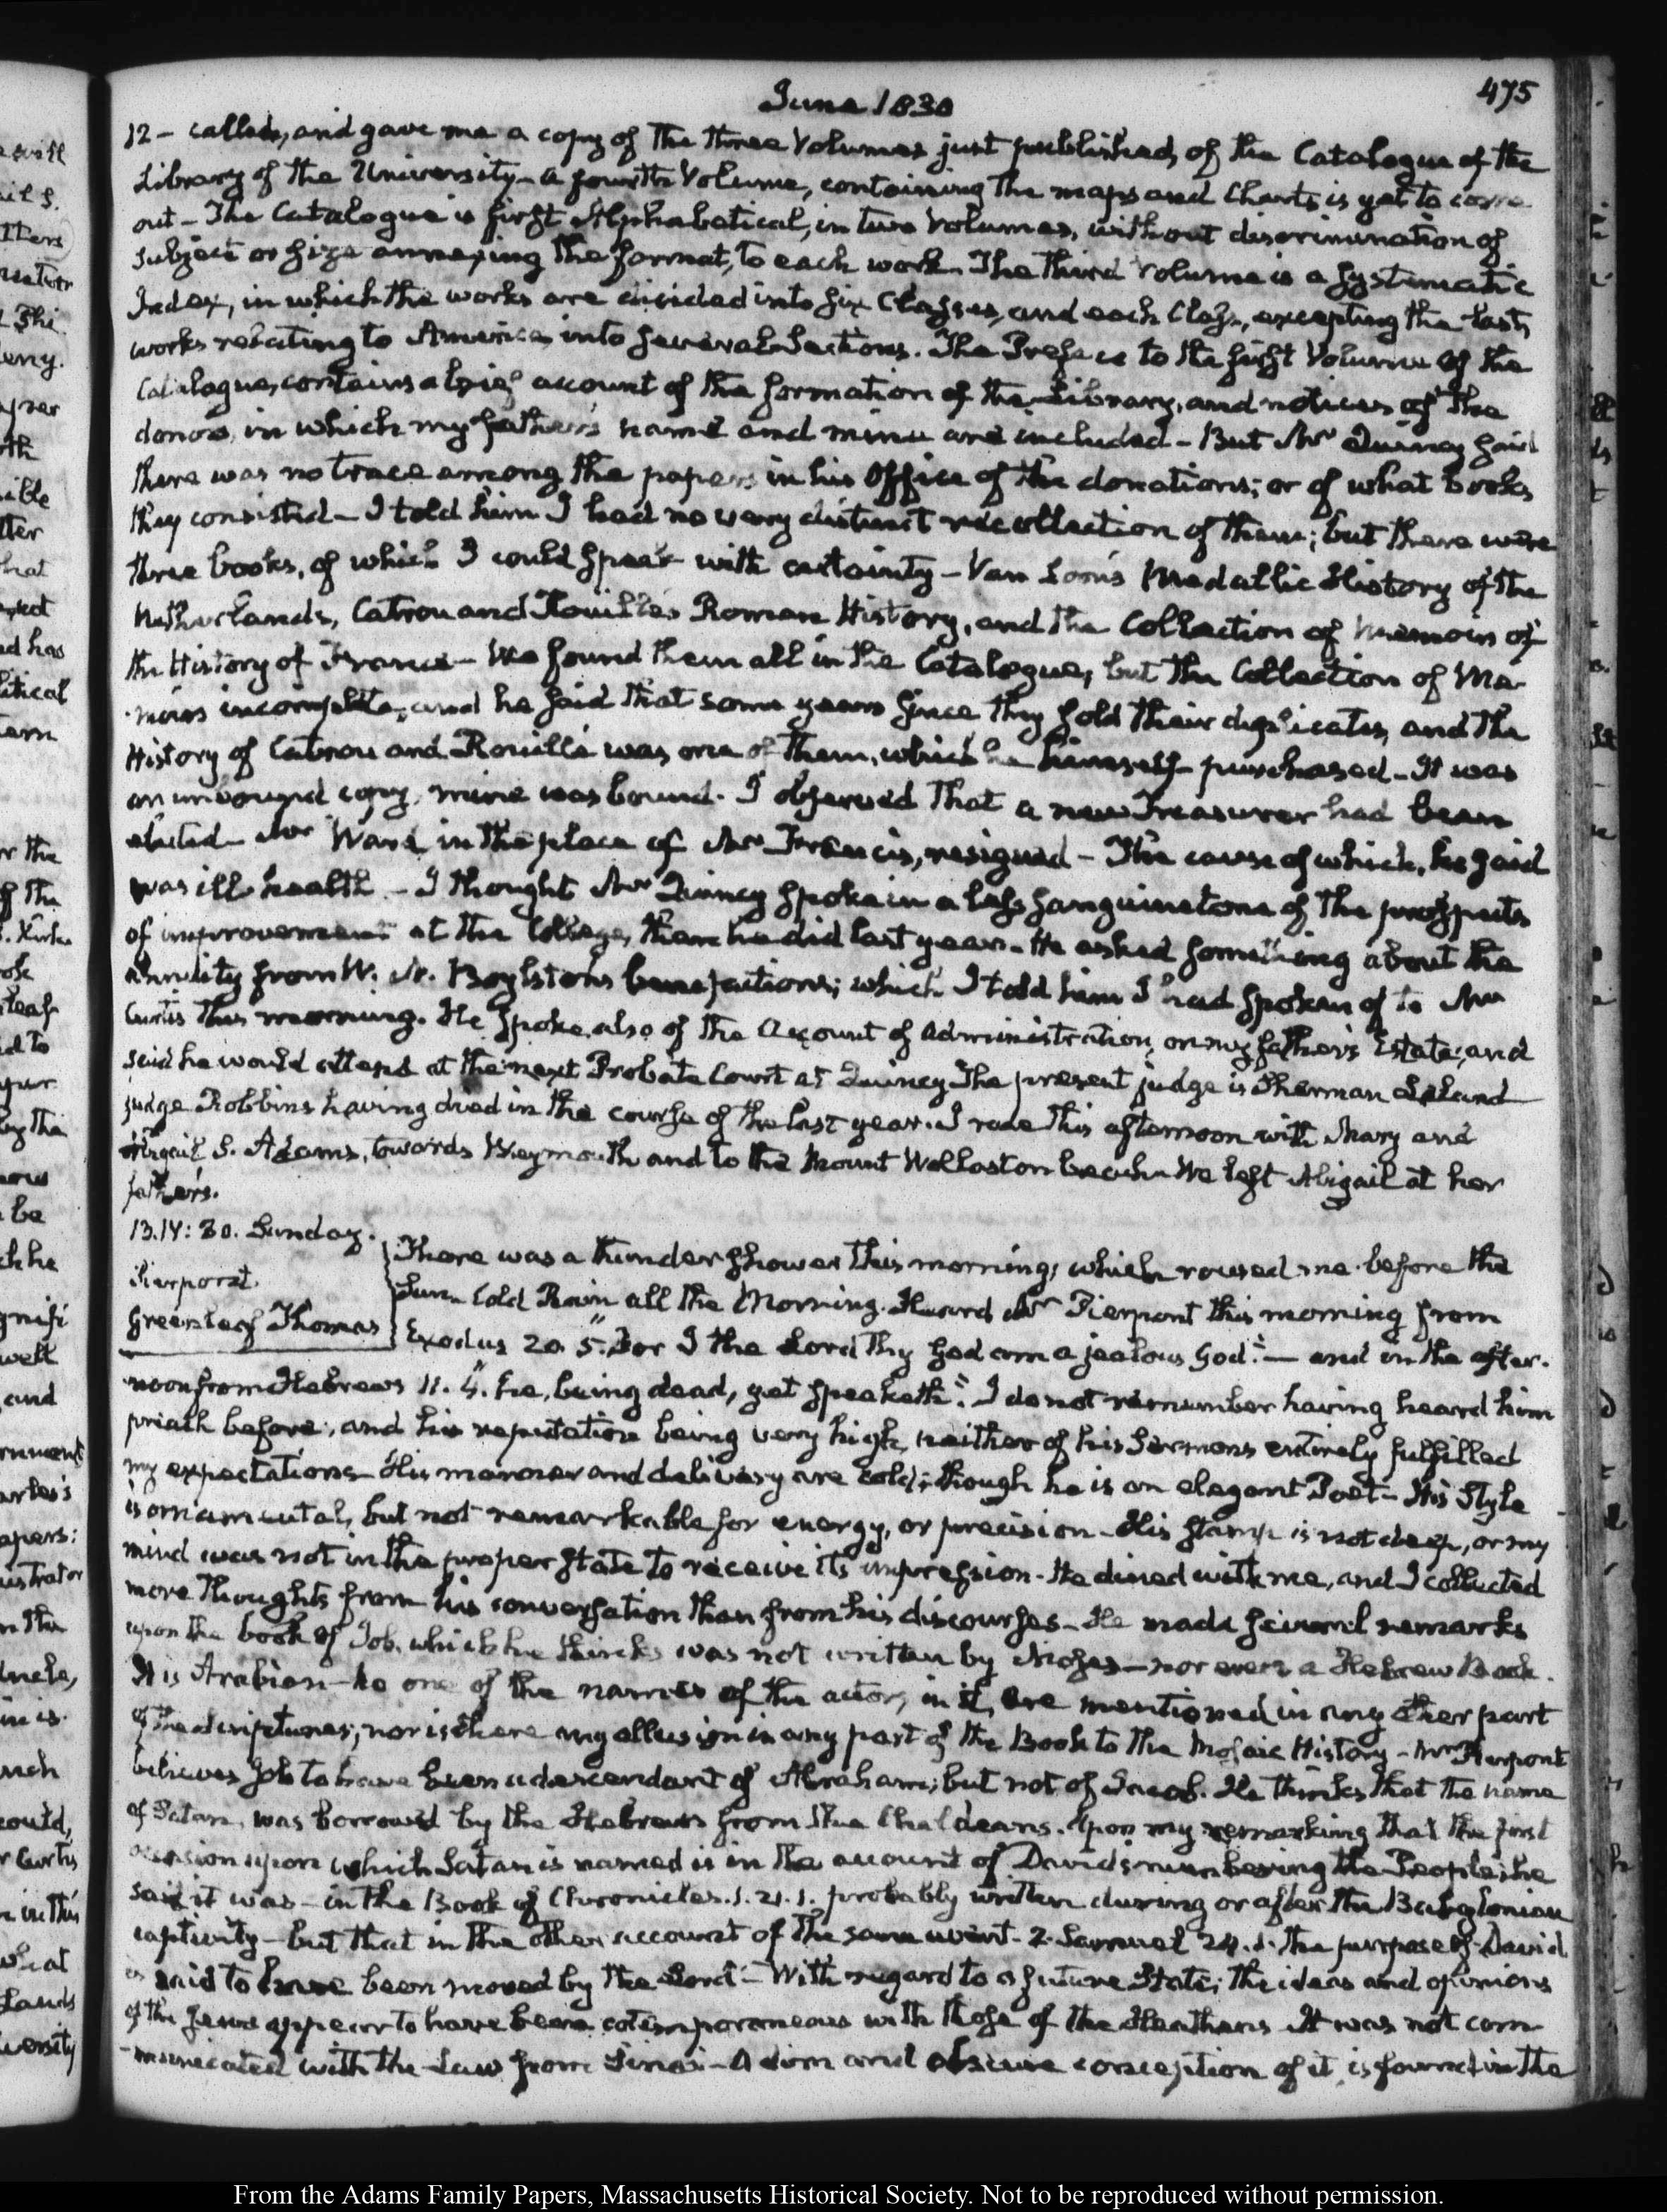 475
June 1830
12 – called, and gave me a copy of the three Volumes just published, of the Catalogue of the
Library of the University – a fourth Volume, containing the maps and Charts is yet to come
out – The Catalogue is first Alphabetical, in two Volumes, without discrimination of
subject or size annexing the format, to each work. The third Volume is a systematic
Index, in which the works are divided into six Classes, and each Class, excepting the last,
works relating to America into several Sections. The Preface to the first Volume of the
Catalogue, contains a brief account of the formation of the Library, and notices of the
donors, in which my father's name and mine are included – But Mr Quincy said
there was no trace among the papers in his Office of the donations; or of what books
they consisted – I told him I had no very distinct recollection of them; but there were
three books, of which I could speak with certainty – Van Loon's Medallic History of the
Netherlands, Catrou and Rouille's Roman History, and the Collection of Memoirs of
the History of France – We found them all in the Catalogue, but the Collection of Me-
moirs incomplete, and he said that some years since they sold their duplicates, and the
History of Catrou and Rouillé was one of them, which he himself purchased – It was
an unbound copy, mine was bound. I observed that a new Treasurer had been
elected – Mr Ward in the place of Mr Francis, resigned – The cause of which, he said
was ill health – I thought Mr Quincy spoke in a less sanguine tone of the prospects
of improvement at the College, than he did last year – He asked something about the
annuity from W. N. Boylston's benefactions; which I told him I had spoken of to Mr
Curtis this morning. He spoke also of the Account of administration, on my father's Estate, and
said he would attend at the next Probate Court at Quincy The present judge is Sherman Leland
judge Robbins having died in the course of the last year. I rode this afternoon with Mary and
Abigail S. Adams, towards Weymouth and to the Mount Wollaston beach We left Abigail at her
father's.
13. IV: 30. Sunday.
Pierpont.
Greenleaf Thomas
There was a thunder shower this morning, which roused me before the
Sun – Cold Rain all the Morning. Heard Mr Pierpont this morning from
Exodus 20. 5. "For I the Lord thy God am a jealous God." – and in the after-
noon from Hebrews 11. 4. "he, being dead, yet speaketh". I do not remember having heard him
preach before; and his reputation being very high, neither of his Sermons entirely fulfilled
my expectations – His manner and delivery are cold; though he is an elegant Poet – His Style
is ornamental, but not remarkable for energy, or precision – His stamp is not deep, or my
mind was not in the proper state to receive its impression – He dined with me, and I collected
more thoughts from his conversation than from his discourses – He made several remarks
upon the book of Job, which he thinks was not written by Moses – nor even a Hebrew Book.
It is Arabian – No one of the names of the actors, in it, are mentioned in any other part
of the Scriptures; nor is there any allusion in any part of the Book to the Mosaic History – Mr Pierpont
believes Job to have been a descendant of Abraham; but not of Jacob. He thinks that the name
of Satan, was borrowed by the Hebrews from the Chaldeans. Upon my remarking that the first
occasion upon which Satan is named is in the account of David's numbering the People; he
said it was – in the Book of Chronicles. 1. 21. 1. probably written during or after the Babylonian
captivity – but that in the other account of the same event – 2. Samuel 24. 1. the purpose of David
is said to have been moved by the Lord – With regard to a future State; the ideas and opinions
of the Jews appear to have been cotemporaneous with those of the Heathens It was not com-
municated with the Law from Sinai – A dim and obscure conception of it, is found in the
From the Adams Family Papers, Massachusetts Historical Society. Not to be reproduced without permission.